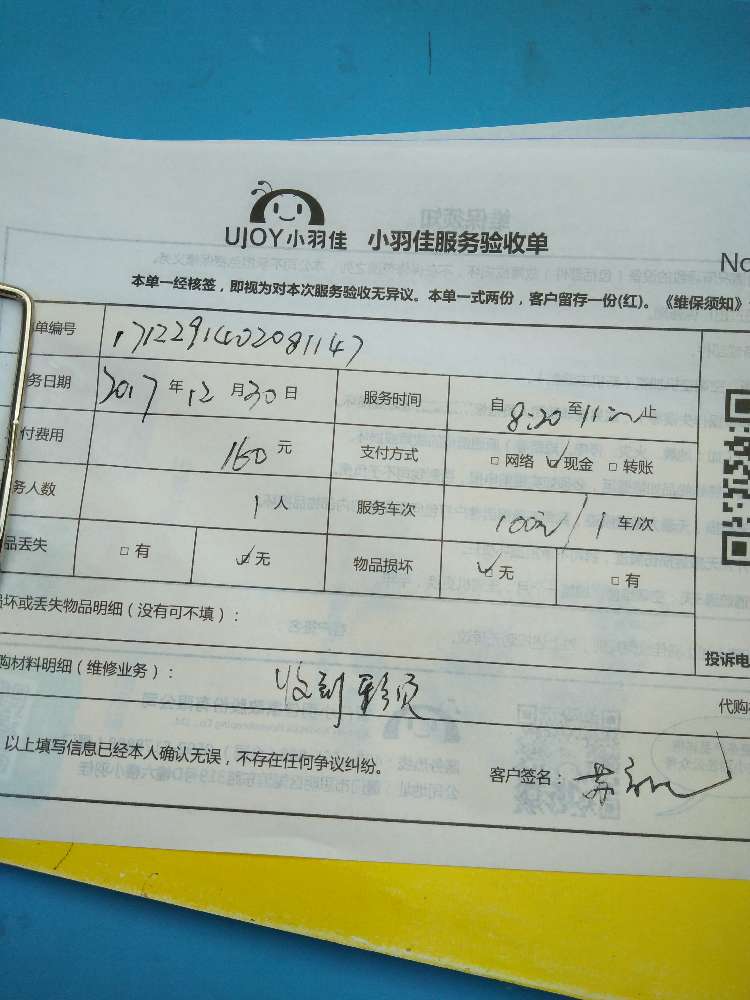 UJOY小羽佳 小羽佳服务验收单
No
本单一经核签，即视为对本次服务验收无异议。本单一式两份，客户留存一份(红)。《维保须知》
单编号 1712291402081147
务日期 2017 年 12 月 30 日 服务时间 自 8:20 至 11 止
付费用 160 元 支付方式 □ 网络 ☑ 现金 □ 转账
务人数 1 人 服务车次 100元/1 车/次
品丢失 □ 有 ☑ 无 物品损坏 ☑ 无 □ 有
坏或丢失物品明细（没有可不填）：
投诉电
购材料明细（维修业务）： 收到
代购
以上填写信息已经本人确认无误，不存在任何争议纠纷。 客户签名：